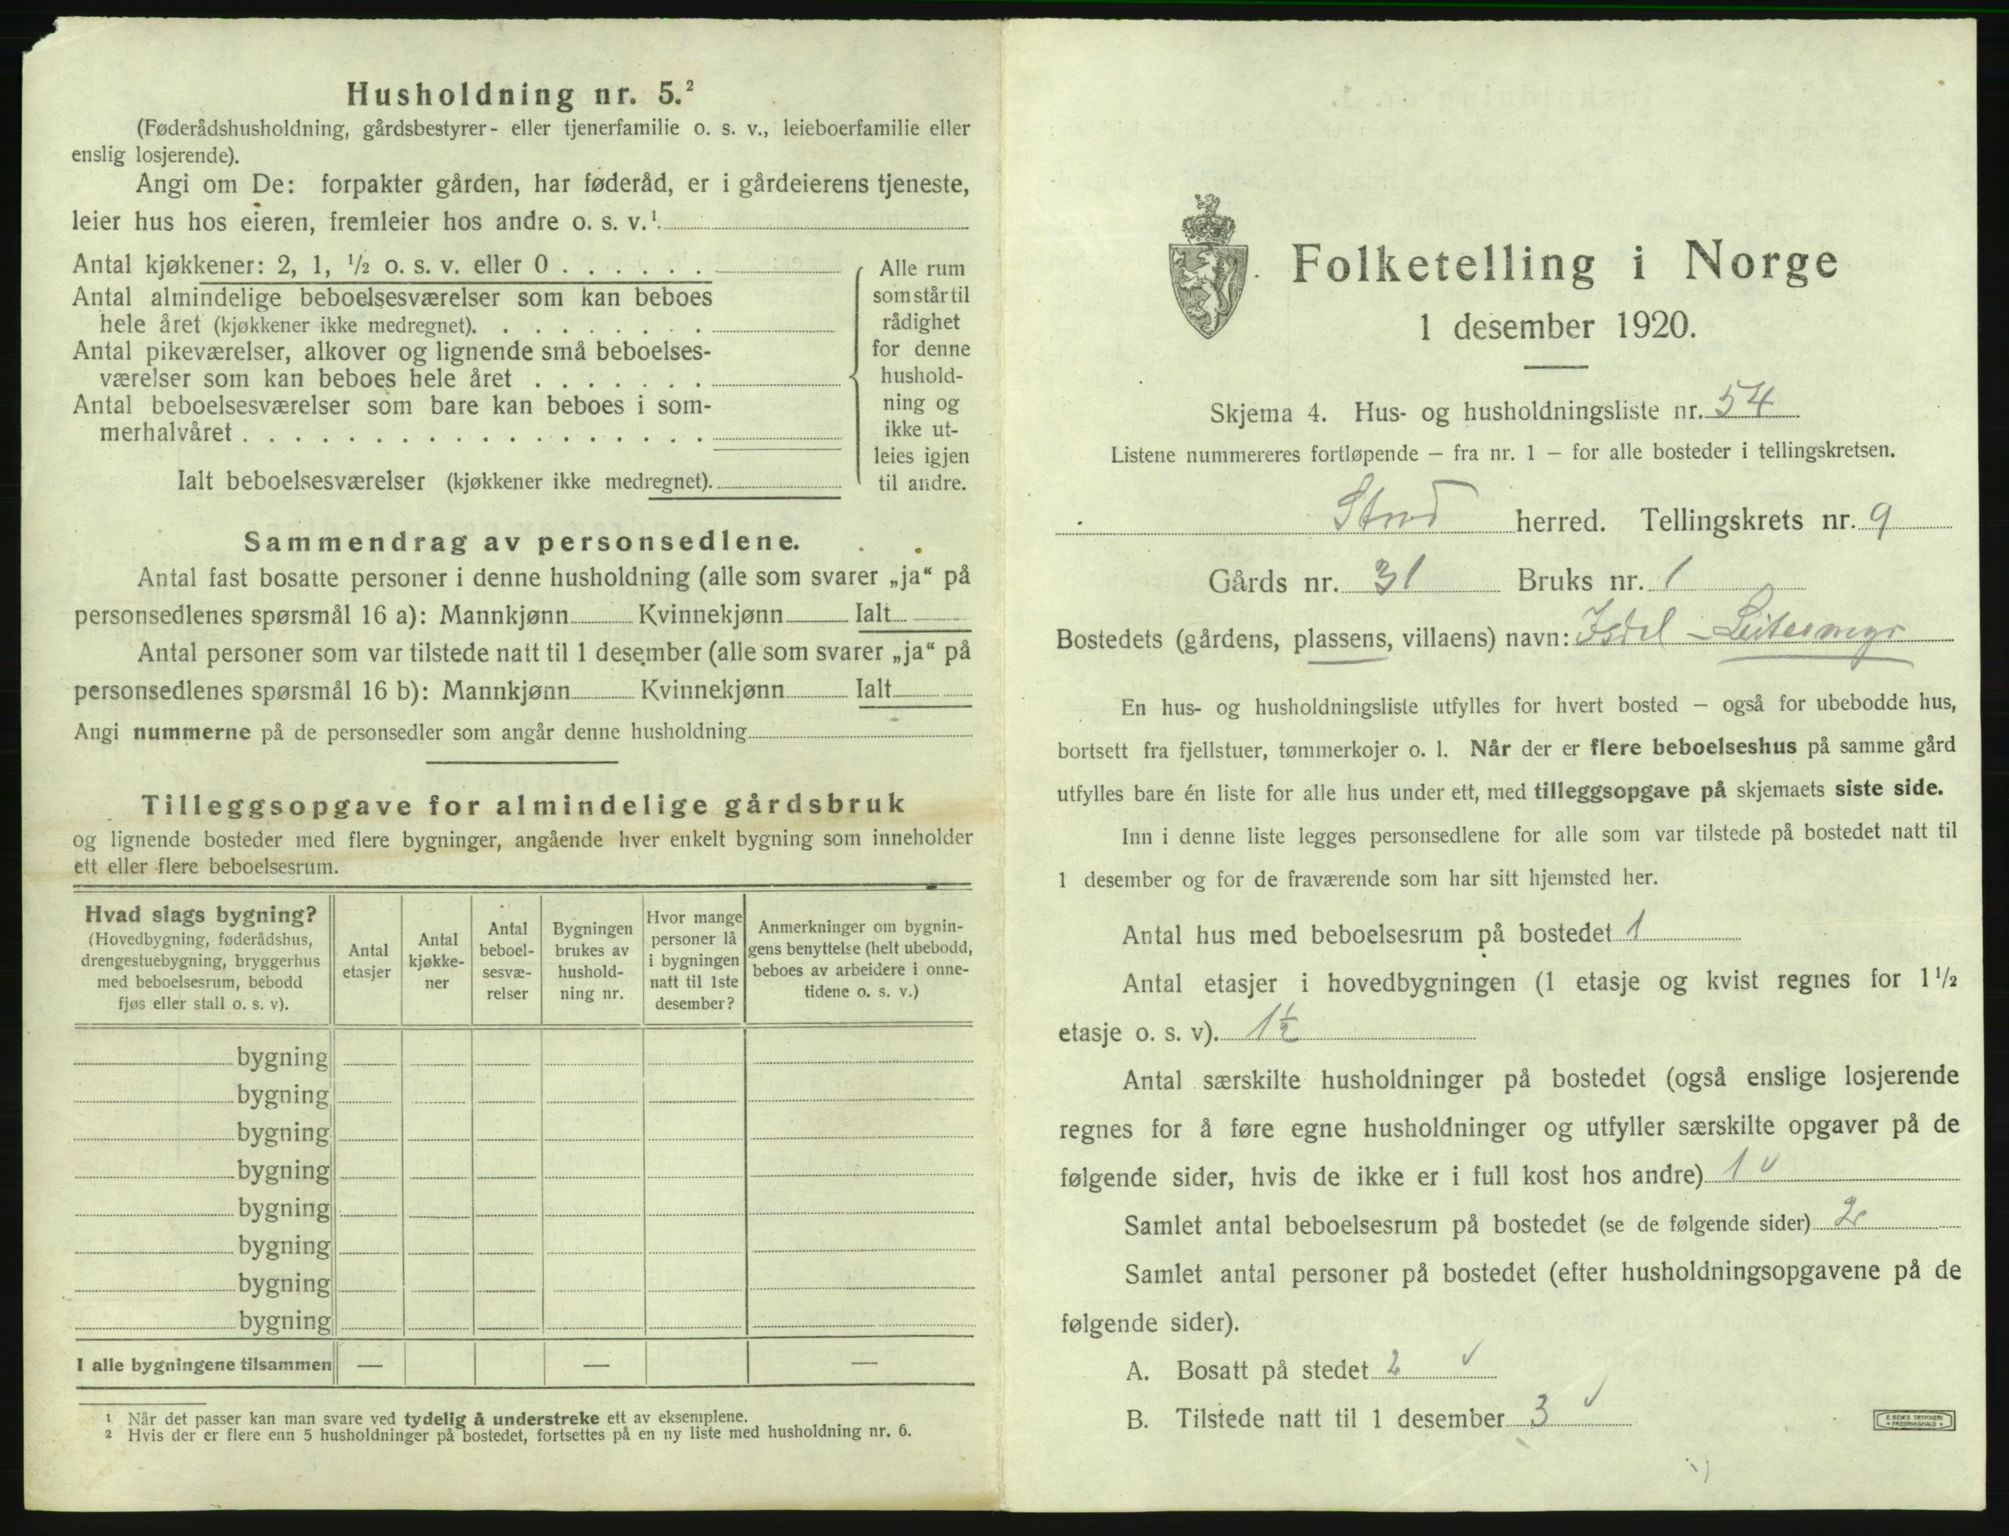 Husholdning nr. 5.²
(Føderådshusholdning, gårdsbestyrer- eller tjenerfamilie o. s. v., leieboerfamilie eller
enslig losjerende).
Angi om De: forpakter gården, har føderåd, er i gårdeierens tjeneste,
leier hus hos eieren, fremleier hos andre o. s. v.¹
Antal kjøkkener: 2, 1, ½ o. s. v. eller 0 . . . . . .
Antal almindelige beboelsesværelser som kan beboes
hele året (kjøkkener ikke medregnet). . . . . . . . .
Antal pikeværelser, alkover og lignende små beboelses-
værelser som kan beboes hele året . . . . . . .
Antal beboelsesværelser som bare kan beboes i som-
merhalvåret . . . . . . . . . . . . . . . . . .
Ialt beboelsesværelser (kjøkkener ikke medregnet).
Alle rum
som står til
rådighet
for denne
hushold-
ning og
ikke ut-
leies igjen
til andre.
Sammendrag av personsedlene.
Antal fast bosatte personer i denne husholdning (alle som svarer „ja“ på
personsedlenes spørsmål 16 a): Mannkjønn Kvinnekjønn Ialt
Antal personer som var tilstede natt til 1 desember (alle som svarer „ja“ på
personsedlenes spørsmål 16 b): Mannkjønn Kvinnekjønn Ialt
Angi nummerne på de personsedler som angår denne husholdning
Tilleggsopgave for almindelige gårdsbruk
og lignende bosteder med flere bygninger, angående hver enkelt bygning som inneholder
ett eller flere beboelsesrum.
Hvad slags bygning?
(Hovedbygning, føderådshus,
drengestuebygning, bryggerhus
med beboelsesrum, bebodd
fjøs eller stall o. s. v).
Antal
etasjer
Antal
kjøkke-
ner
Antal
beboel-
sesvæ-
relser
Bygningen
brukes av
hushold-
ning nr.
Hvor mange
personer lå
i bygningen
natt til 1ste
desember?
Anmerkninger om bygnin-
gens benyttelse (helt ubebodd,
beboes av arbeidere i onne-
tidene o. s. v.)
bygning
bygning
bygning
bygning
bygning
bygning
bygning
bygning
I alle bygningene tilsammen — — —
¹ Når det passer kan man svare ved tydelig å understreke ett av eksemplene.
² Hvis der er flere enn 5 husholdninger på bostedet, fortsettes på en ny liste med husholdning nr. 6.
Folketelling i Norge
1 desember 1920.
Skjema 4. Hus- og husholdningsliste nr. 54
Listene nummereres fortløpende – fra nr. 1 – for alle bosteder i tellingskretsen.
Stord herred. Tellingskrets nr. 9
Gårds nr. 31 Bruks nr. 1
Bostedets (gårdens, plassens, villaens) navn:
En hus- og husholdningsliste utfylles for hvert bosted – også for ubebodde hus,
bortsett fra fjellstuer, tømmerkojer o. l. Når der er flere beboelseshus på samme gård
utfylles bare én liste for alle hus under ett, med tilleggsopgave på skjemaets siste side.
Inn i denne liste legges personsedlene for alle som var tilstede på bostedet natt til
1 desember og for de fraværende som har sitt hjemsted her.
Antal hus med beboelsesrum på bostedet 1
Antal etasjer i hovedbygningen (1 etasje og kvist regnes for 1½
etasje o. s. v). 1½
Antal særskilte husholdninger på bostedet (også enslige losjerende
regnes for å føre egne husholdninger og utfyller særskilte opgaver på de
følgende sider, hvis de ikke er i full kost hos andre) 1 v
Samlet antal beboelsesrum på bostedet (se de følgende sider) 2
Samlet antal personer på bostedet (efter husholdningsopgavene på de
følgende sider).
A. Bosatt på stedet 2 v
B. Tilstede natt til 1 desember 3 v